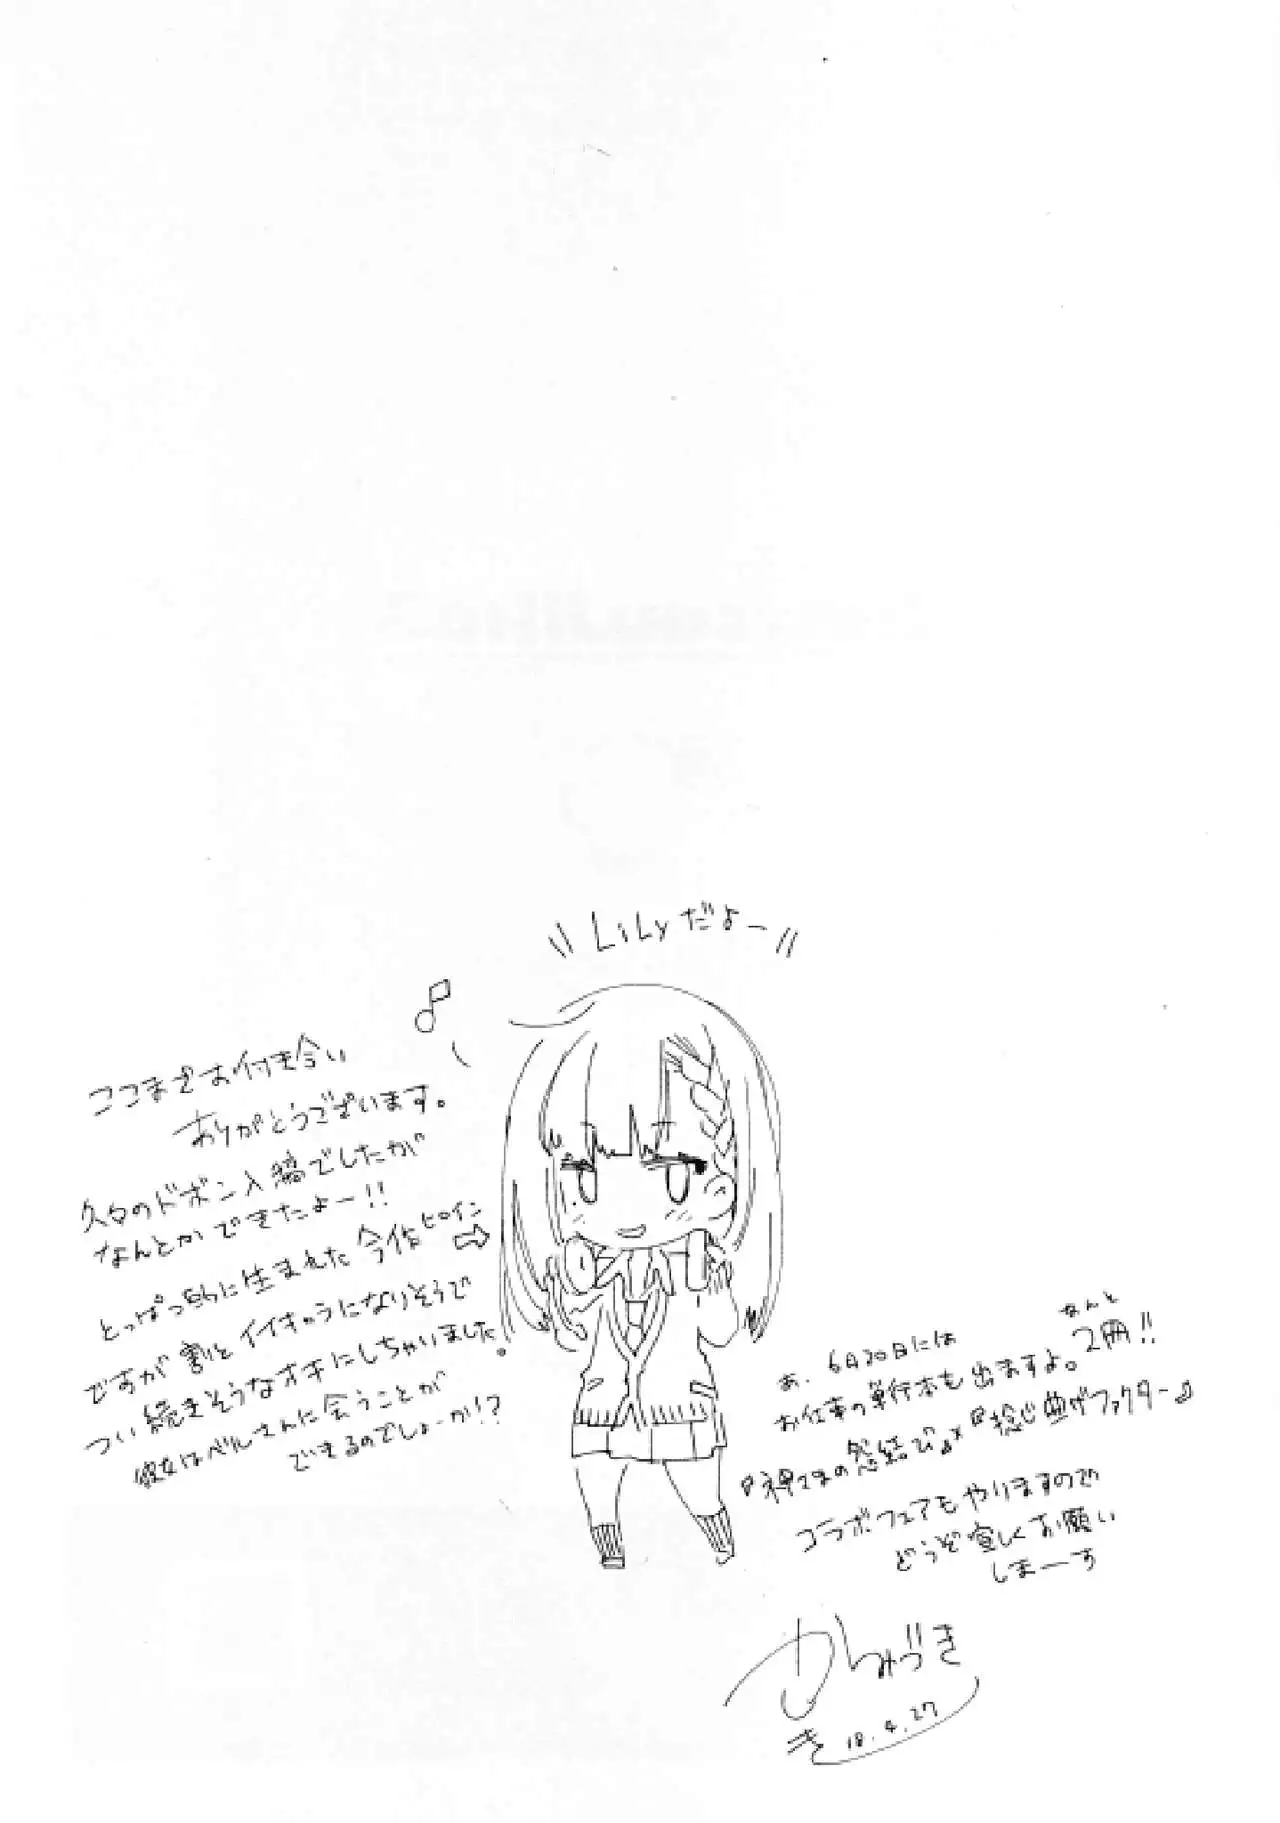 Lilyだよー
ここまでお付き合い
ありがとうございます。
久々のドボン入稿でしたが
なんとかできたよー!!
とっぱつ的に生まれた今作ヒロイン
ですが割とイイキャラになりそうで
つい続きそうなオチにしちゃいました!
彼女はベルさんに会うことが
できるのでしょーか!?
あ、6月30日には
お仕事の単行本も出ますよ。なんと2冊!!
『神さまの怨結び』×『捻じ曲げファクター』
コラボフェアもやりますので
どうぞ宜しくお願い
しまーす
かつみづき
18.4.27